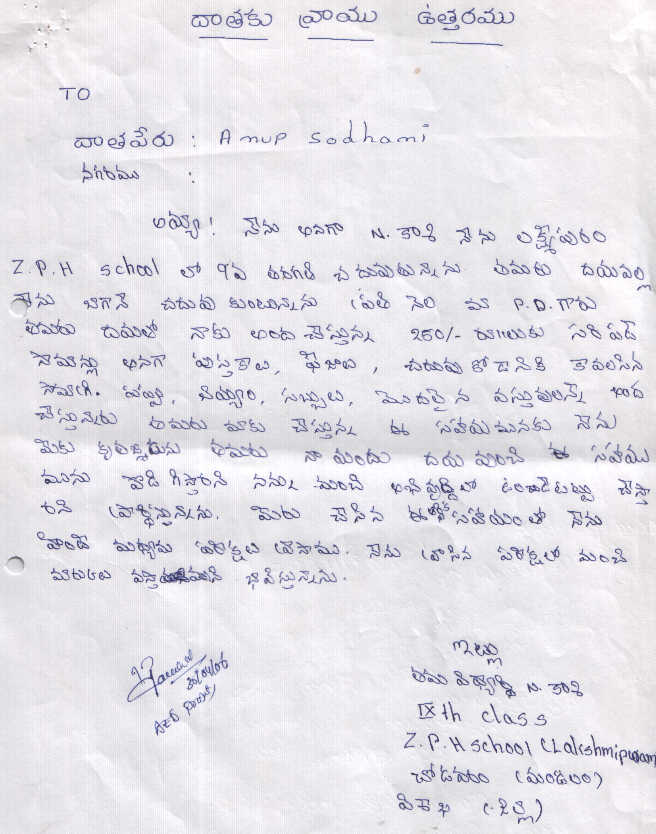 దాతకు వ్రాయు ఉత్తరము
TO
దాతపేరు : Anup Sodhani
నగరము :
అయ్యా! నేను అనగా N. కాశి నేను లక్ష్మీపురం
Z.P.H school లో 9వ తరగతి చదువుతున్నాను. తమరు దయవల్ల
నేను బాగానే చదువు కుంటున్నాను ప్రతి నెల మా P.D. గారు
తమరు దయతో నాకు అంద చేస్తున్న 250/- రూ॥లుకు సరిపడే
సామాన్లు అనగా పుస్తకాలు, ఫీజులు, చదువు కోడానికి కావలసిన
సామాగ్రి. పప్పు, బియ్యం, సబ్బులు, మొదలైన వస్తువులన్నీ అంద
చేస్తున్నారు తమరు మాకు చేస్తున్న ఈ సహాయమునకు నేను
మీకు కృతజ్ఞుడను తమరు నా యందు దయ వుంచి ఈ సహాయ
మును పొడిగిస్తారని నన్ను మంచి అభివృద్ధిలో ఉంచేటట్లు చేస్తా
రని ప్రార్థిస్తున్నాను. మీరు చేసిన ఈ సహాయంతో నేను
పరీక్షలు వ్రాసాను. నేను వ్రాసిన పరీక్షలో మంచి
మారుకులు భావిస్తున్నాను.
20/04/06
ఇట్లు
తమ విద్యార్థి N. కాశి
IXth class
Z.P.H school (Lakshmipuram
చోడవరం (మండలం)
విశాఖ (జిల్లా)